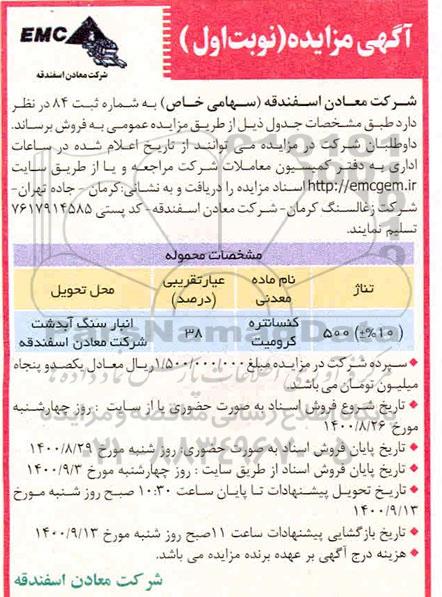 آگهی مزایده (نوبت اول)
EMC
شرکت معادن اسفندقه
شرکت معادن اسفندقه (سهامی خاص) به شماره ثبت ۸۴ در نظر
دارد طبق مشخصات جدول ذیل از طریق مزایده عمومی به فروش برساند.
داوطلبان شرکت در مزایده می توانند از تاریخ اعلام شده در ساعات
اداری به دفتر کمیسیون معاملات شرکت مراجعه و یا از طریق سایت
http://emcgem.ir اسناد مزایده را دریافت و به نشانی: کرمان - جاده تهران-
شرکت زغالسنگ کرمان- شرکت معادن اسفندقه- کد پستی ۷۶۱۷۹۱۴۵۸۵
تسلیم نمایند.
مشخصات محموله
تناژ نام ماده معدنی عیارتقریبی (درصد) محل تحویل
۵۰۰ (±%۱۰) کنسانتره کرومیت ۳۸ انبار سنگ آبدشت شرکت معادن اسفندقه
سپرده شرکت در مزایده مبلغ ۱/۵۰۰/۰۰۰/۰۰۰ ریال معادل یکصدو پنجاه
میلیون تومان می باشد.
تاریخ شروع فروش اسناد به صورت حضوری یا از سایت : روز چهارشنبه
مورخ ۱۴۰۰/۸/۲۶
تاریخ پایان فروش اسناد به صورت حضوری: روز شنبه مورخ ۱۴۰۰/۸/۲۹
تاریخ پایان فروش اسناد از طریق سایت : روز چهارشنبه مورخ ۱۴۰۰/۹/۳
تاریخ تحویل پیشنهادات تا پایان ساعت ۱۰:۳۰ صبح روز شنبه مورخ
۱۴۰۰/۹/۱۳
تاریخ بازگشایی پیشنهادات ساعت ۱۱صبح روز شنبه مورخ ۱۴۰۰/۹/۱۳
هزینه درج آگهی بر عهده برنده مزایده می باشد.
شرکت معادن اسفندقه